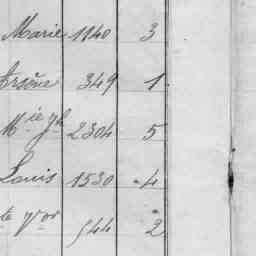 Marie 1140 3
Arsène 349 1
Mie Jh 2304 5
Louis 1530 4
te 544 2